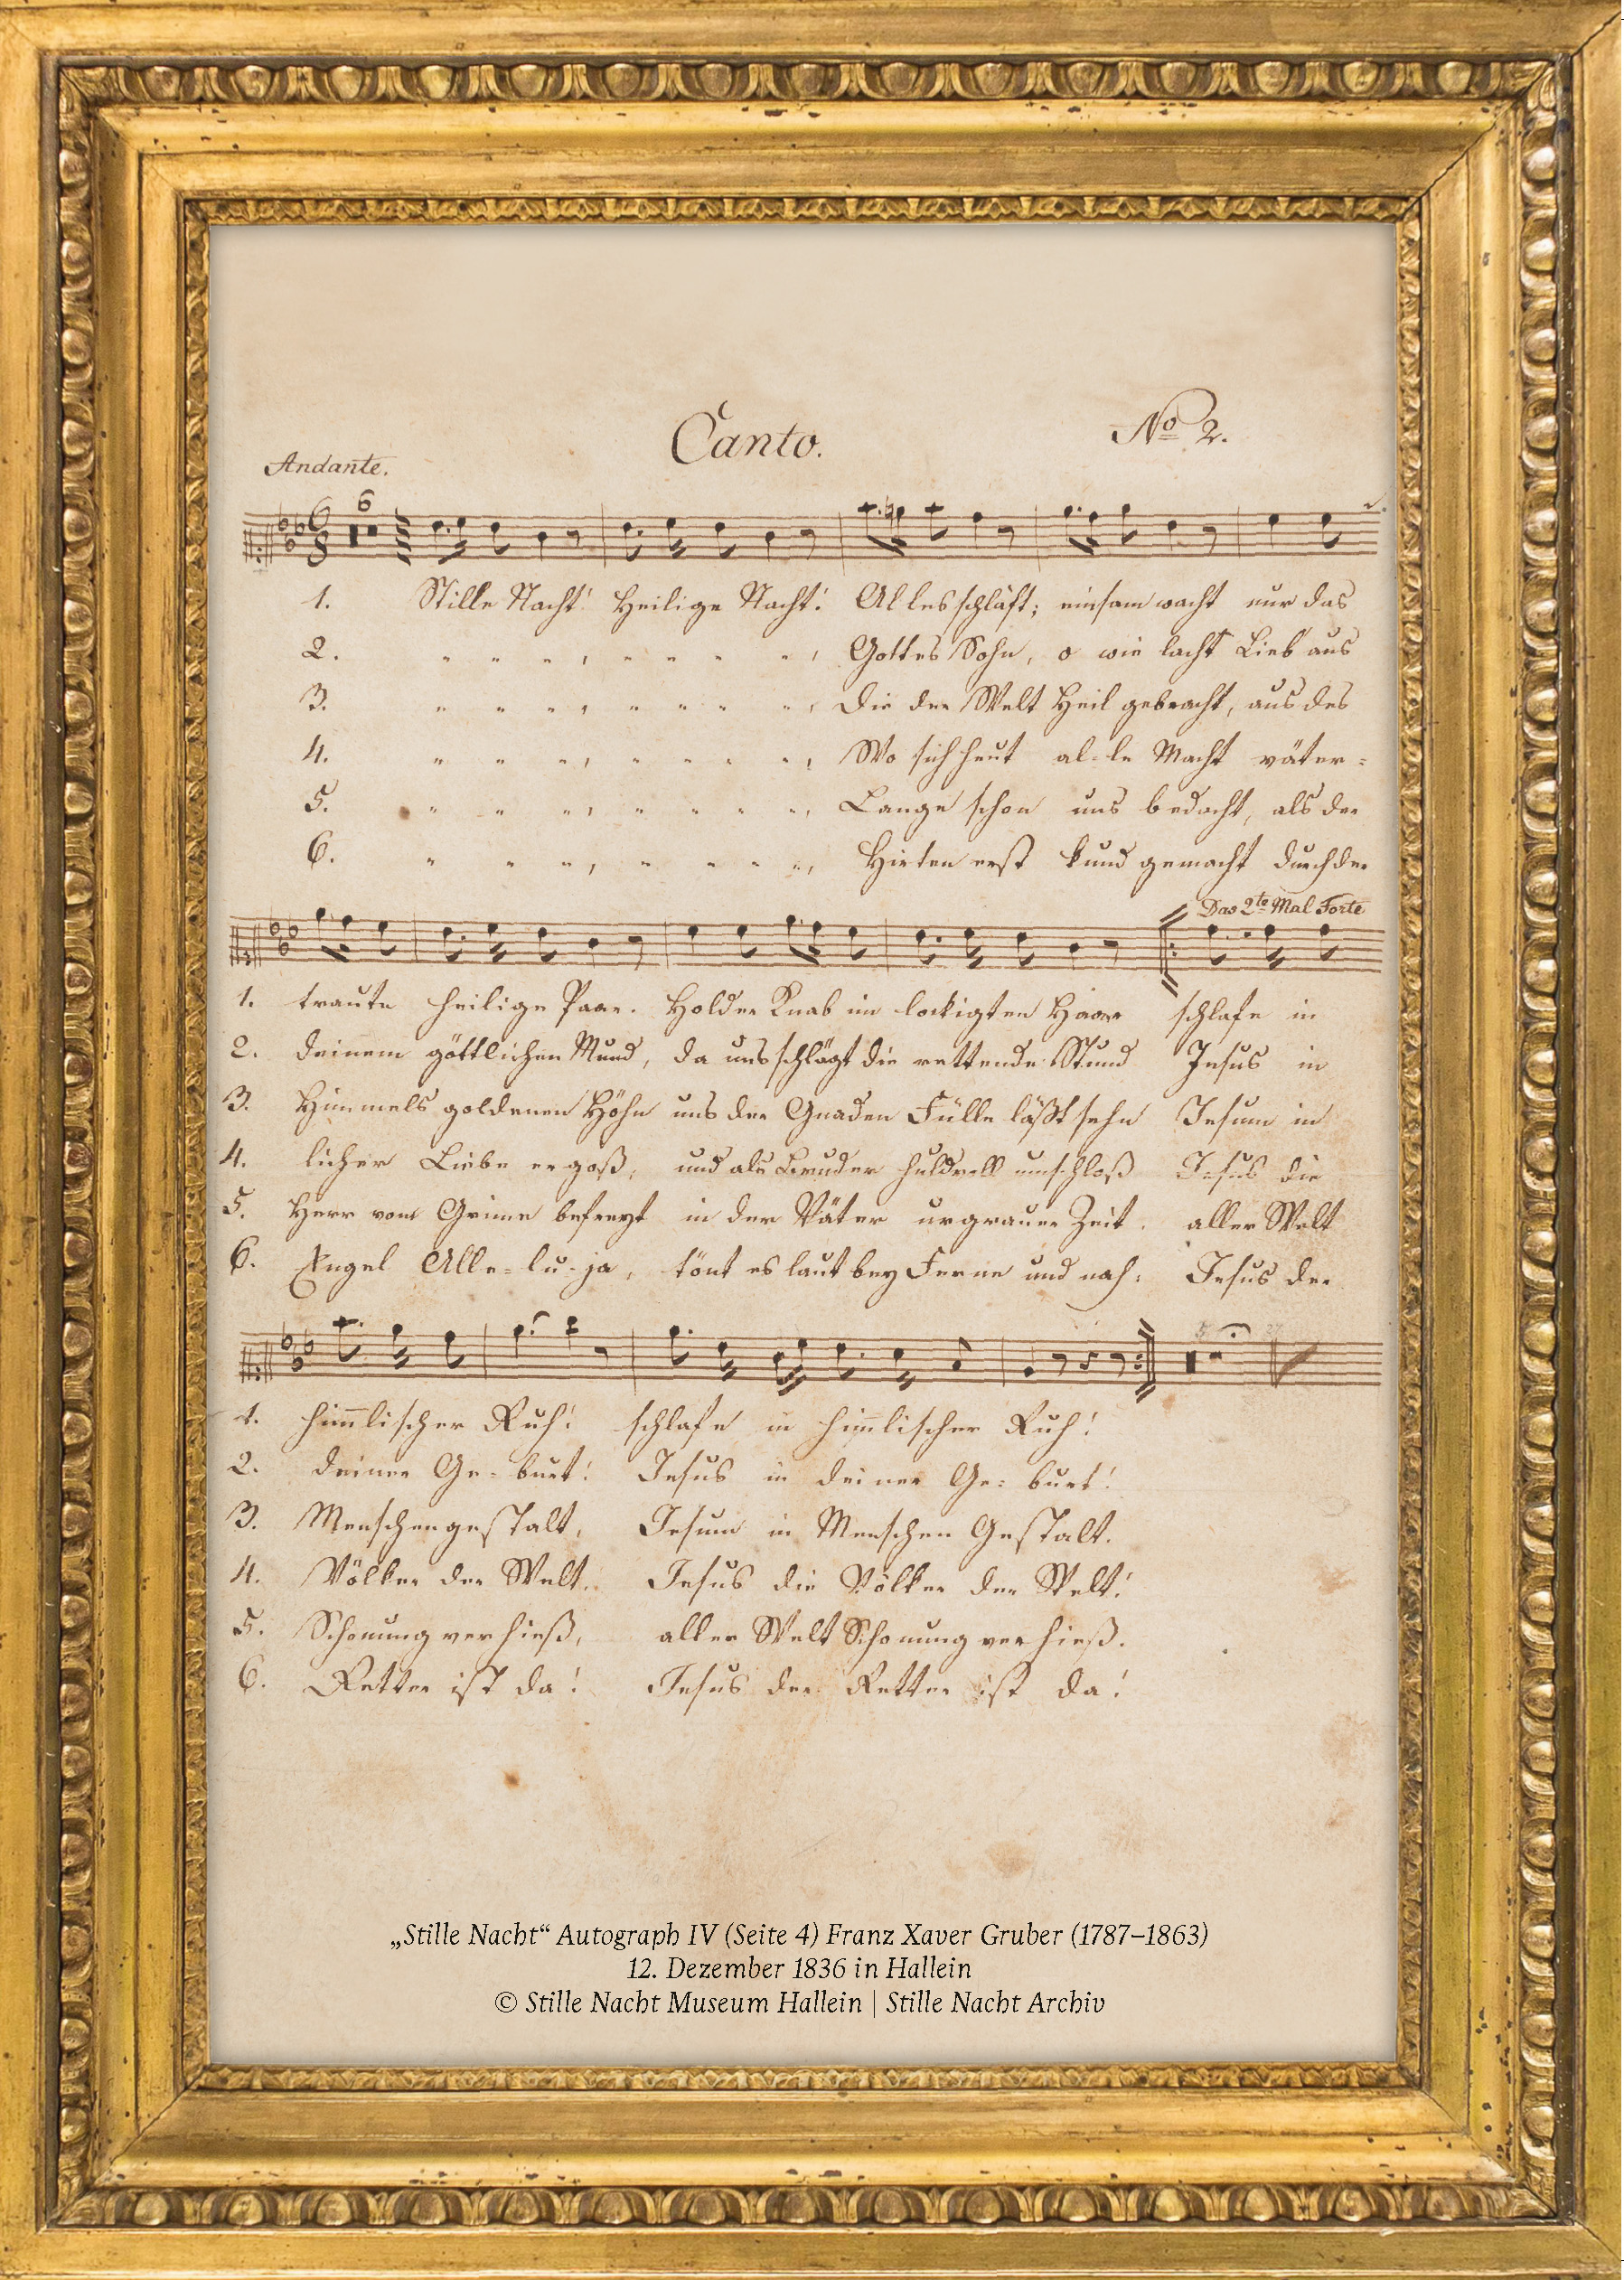 Canto. No 2.
Andante.
6
1. Stille Nacht! Heilige Nacht! Alles schläft; einsam wacht nur das
2. " " " , " " " " , Gottes Sohn, o wie lacht Lieb' aus
3. " " " , " " " " , Die der Welt Heil gebracht, aus des
4. " " " , " " " " , Wo sich heut al-le Macht väter=
5. " " " , " " " " , Lange schon uns bedacht, als der
6. " " " , " " " " , Hirten erst kund gemacht durch der
Das 2te Mal Forte
1. traute heilige Paar. Holder Knab im lockigten Haar schlafe in
2. deinem göttlichen Mund, da uns schlägt die rettende Stund Jesus in
3. Himmels goldenen Höhn uns der Gnaden Fülle läßt sehn Jesum in
4. licher Liebe ergoß, und als Bruder huldvoll umschloß Jesus die
5. Herr vom Grime befreyt in der Väter urgrauer Zeit. aller Welt
6. Engel Alle-lu-ja, tönt es laut bey Ferne und nah: Jesus der
1. him̅lischer Ruh! schlafe in him̅lischer Ruh!
2. deiner Ge-burt! Jesus in deiner Ge-burt!
3. Menschengestalt, Jesum in Menschen Gestalt.
4. Völker der Welt, Jesus die Völker der Welt!
5. Schonung verhieß, aller Welt Schonung verhieß.
6. Retter ist da! Jesus der Retter ist da!
„Stille Nacht“ Autograph IV (Seite 4) Franz Xaver Gruber (1787–1863)
12. Dezember 1836 in Hallein
© Stille Nacht Museum Hallein | Stille Nacht Archiv